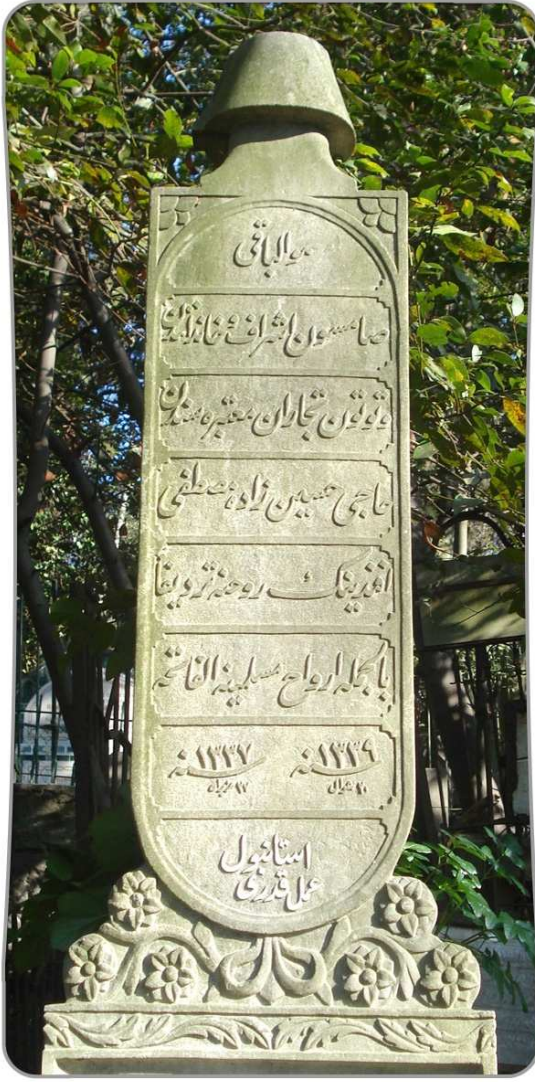 هوالباقی
صامسون اشراف و خاندانندن
و توتون تجاران معتبره سندن
حاجی حسین زاده مصطفی
افندینك روحنه تردیفا
بالجمله ارواح مسلمینه الفاتحه
سنه ١٣٣٩ سنه ١٣٣٧
٢٠ شوال ٢٧ حزیران
استانبول
عمل قدری